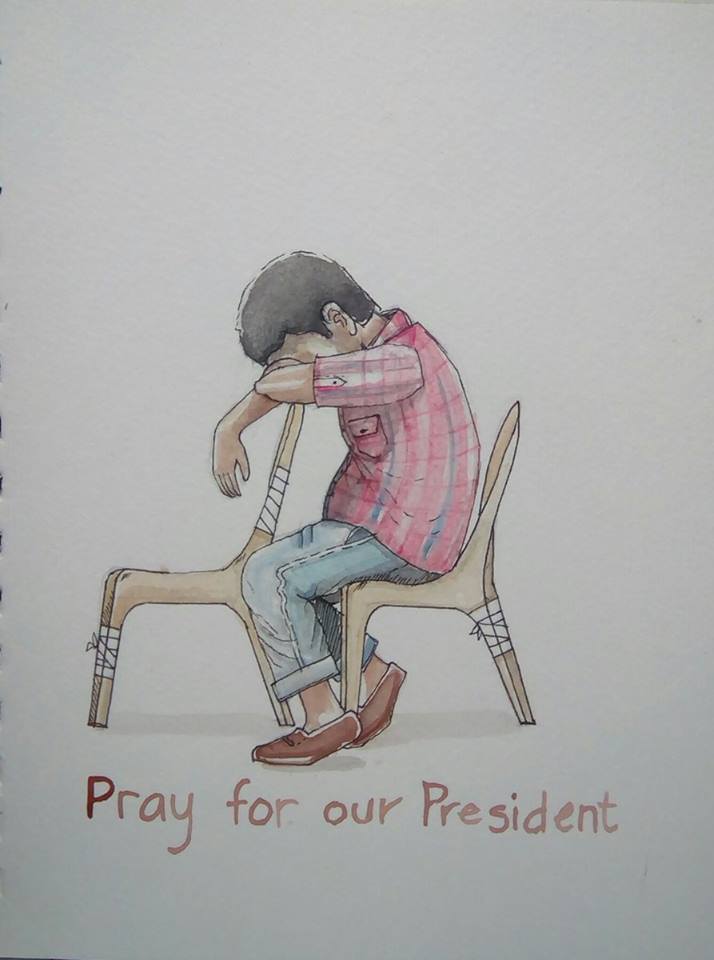 Pray for our President